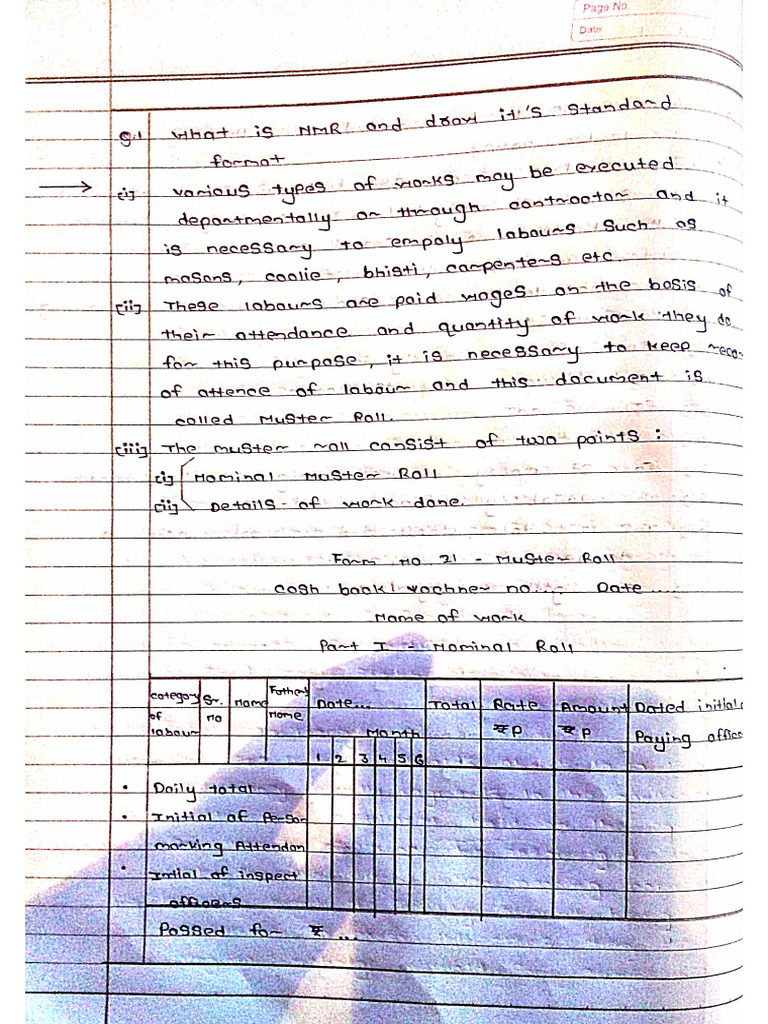 Page No.
Date
Q.1 What is NMR and draw it's standard
format
[i] various types of works may be executed
departmentally or through contractor and it
is necessary to empoly labours such as
masons, coolie, bhisti, carpenters etc
[ii] These labours are paid wages on the basis of
their attendance and quantity of work they do
for this purpose, it is necessary to keep
of attence of labour and this document is
called Muster Roll.
[iii] The muster roll consist of two points :
[i] Nominal Muster Roll
[ii] Details of work done.
Form No 21 - Muster Roll.
cash book/ vochner no.... Date ....
Name of work
Part I - Nominal Roll
category of labour Sr. no Name Father's Name Date... Month Total Rate ₹ P Amount ₹ P Dated initial Paying office
1 2 3 4 5 6
• Daily total
• Initial of Person
marking Attendan
• Intial of inspect
officers
Passed for ₹ ...